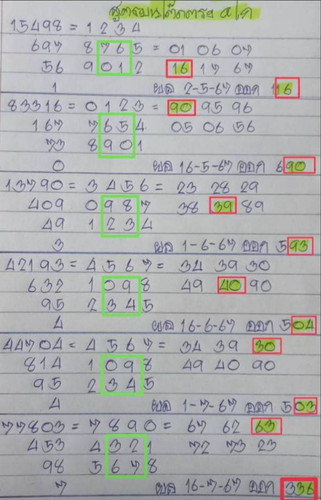 15498 = 1234
697 8765 = 01 06 07
56 9012 16 17 67
1 ผล 2-5-67 ออก 116
83316 = 0123 = 90 95 96
167 7654 05 06 56
73 8901
0 ผล 16-5-67 ออก 690
13790 = 3456 = 23 28 29
409 0987 38 39 89
49 1234
3 ผล 1-6-67 ออก 593
42193 = 4567 = 34 39 30
632 1098 49 40 90
95 2345
4 ผล 16-6-67 ออก 504
44704 = 4567 = 34 39 30
814 1098 49 40 90
95 2345
4 ผล 1-7-67 ออก 503
77803 = 7890 = 67 62 63
453 4321 72 73 23
98 5678
7 ผล 16-7-67 ออก 336